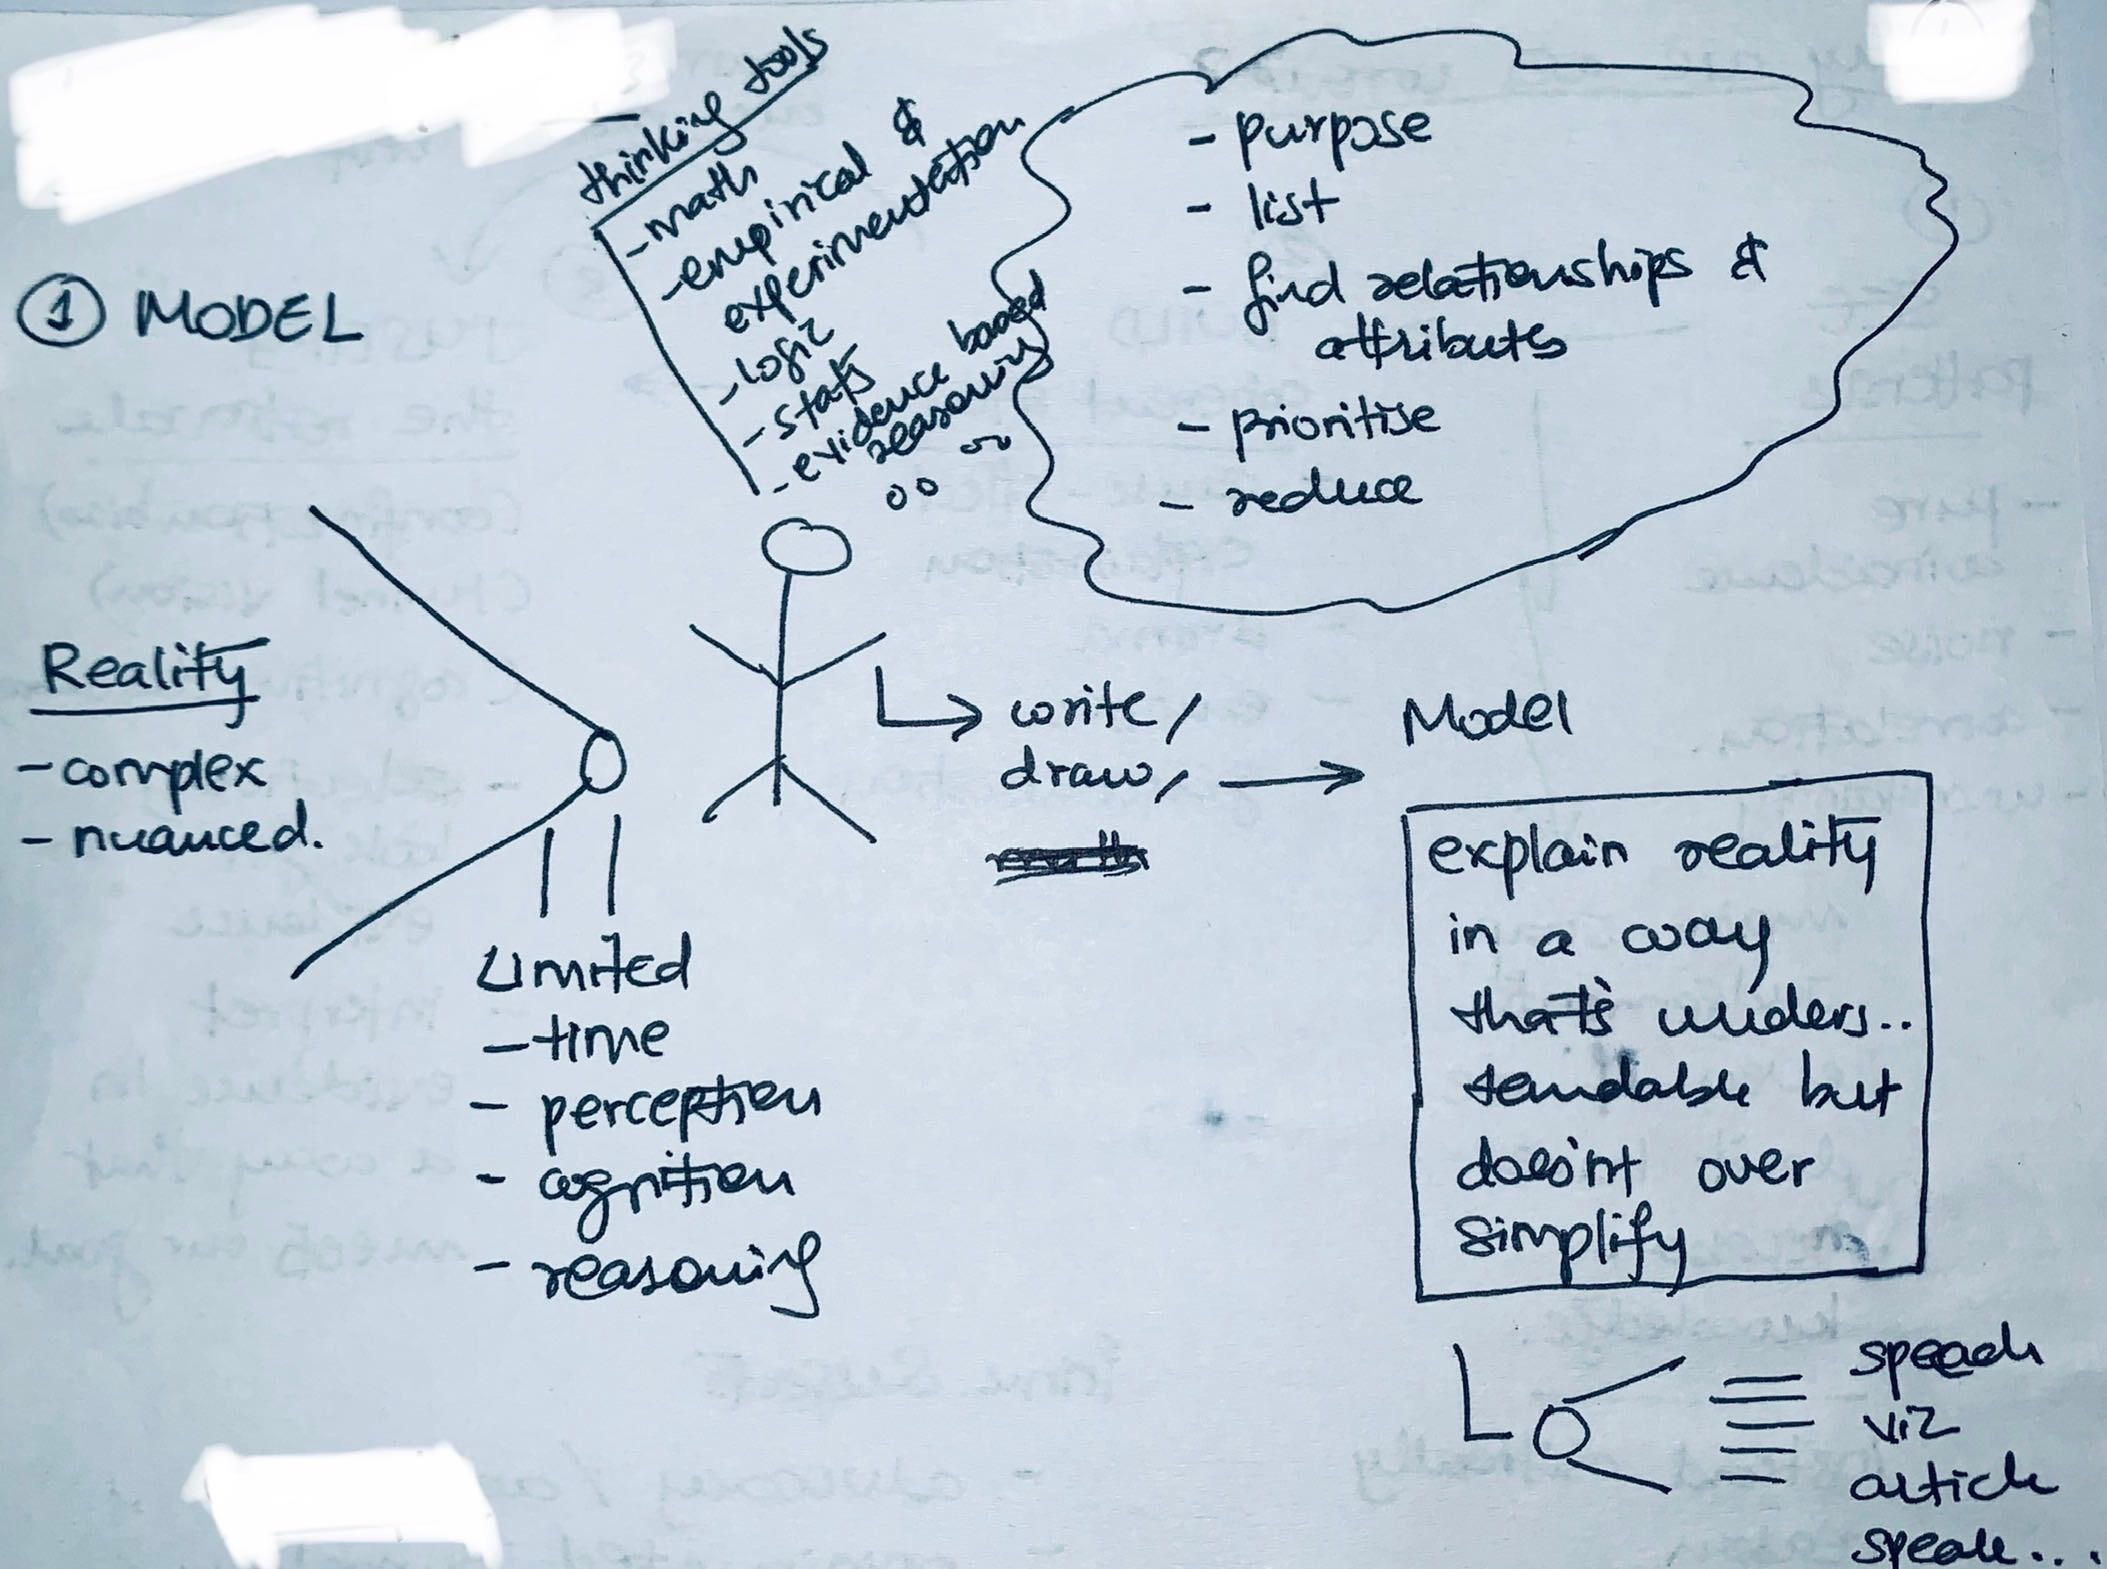 thinking tools
- math
- empirical &
experimentation
- logic
- stats
- evidence based
reasoning
- purpose
- list
- find relationships &
attributes
- prioritise
- reduce
① MODEL
Reality
- complex
- nuanced.
Limited
- time
- perception
- cognition
- reasoning
write /
draw /
Model
explain reality
in a way
that's unders..
tandable but
does'nt over
simplify
speach
viz
article
speak...